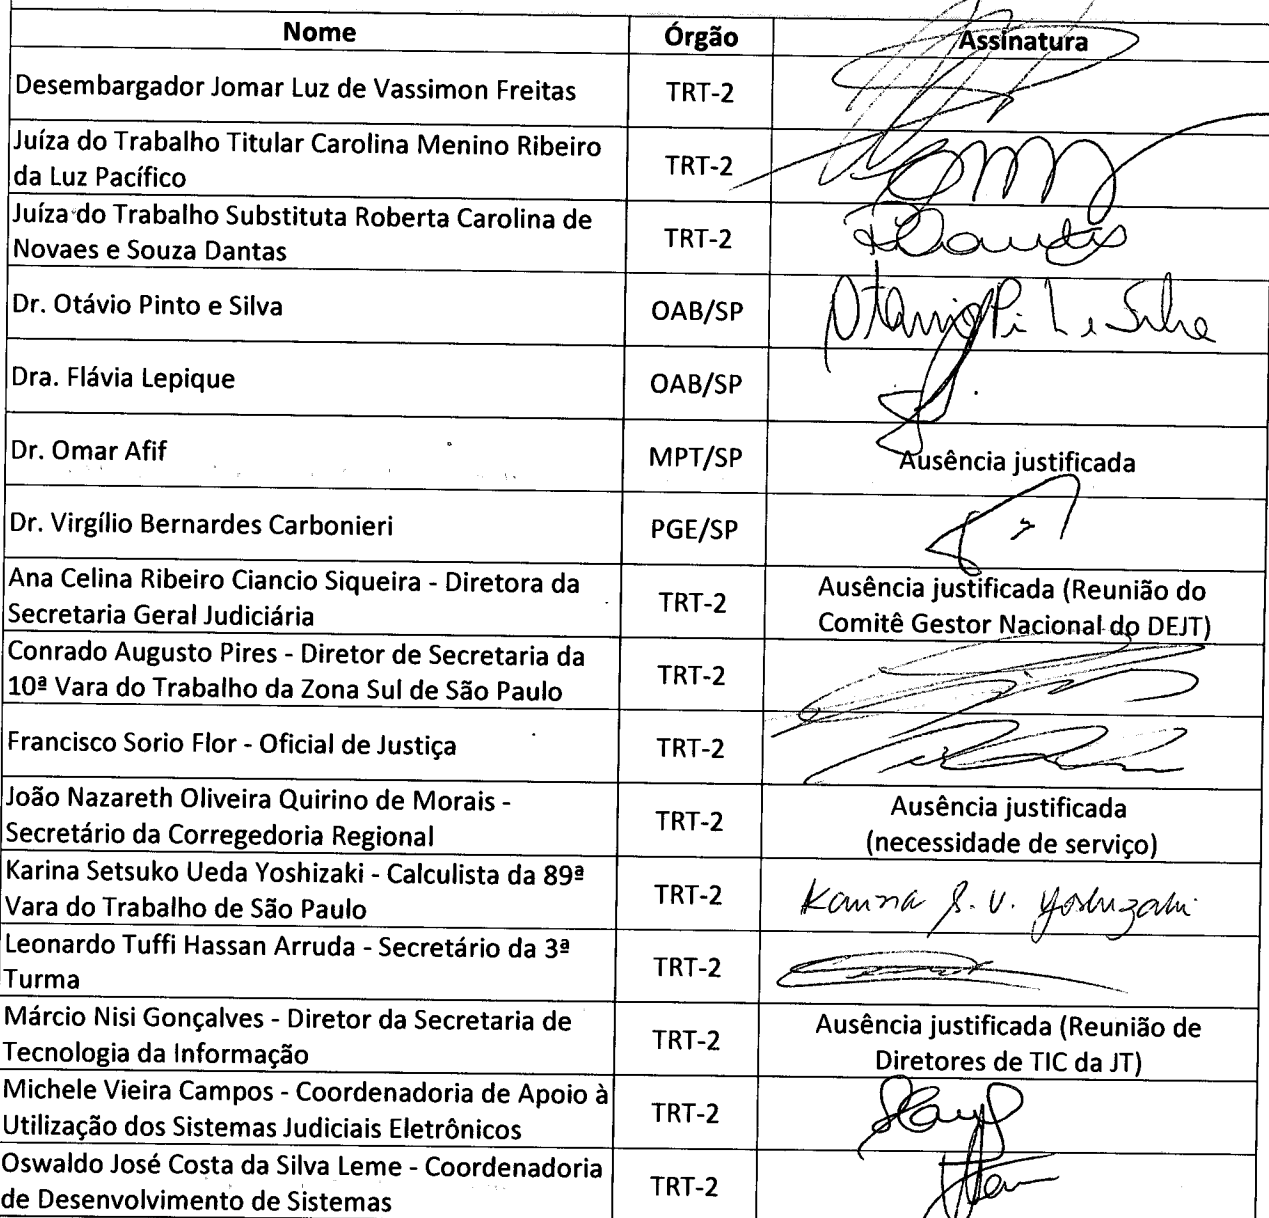 Nome Órgão Assinatura
Desembargador Jomar Luz de Vassimon Freitas TRT-2
Juíza do Trabalho Titular Carolina Menino Ribeiro
da Luz Pacífico TRT-2
Juíza do Trabalho Substituta Roberta Carolina de
Novaes e Souza Dantas TRT-2
Dr. Otávio Pinto e Silva OAB/SP
Dra. Flávia Lepique OAB/SP
Dr. Omar Afif MPT/SP Ausência justificada
Dr. Virgílio Bernardes Carbonieri PGE/SP
Ana Celina Ribeiro Ciancio Siqueira - Diretora da
Secretaria Geral Judiciária TRT-2 Ausência justificada (Reunião do
Comitê Gestor Nacional do DEJT)
Conrado Augusto Pires - Diretor de Secretaria da
10ª Vara do Trabalho da Zona Sul de São Paulo TRT-2
Francisco Sorio Flor - Oficial de Justiça TRT-2
João Nazareth Oliveira Quirino de Morais -
Secretário da Corregedoria Regional TRT-2 Ausência justificada
(necessidade de serviço)
Karina Setsuko Ueda Yoshizaki - Calculista da 89ª
Vara do Trabalho de São Paulo TRT-2 Karina S. U. Yoshizaki
Leonardo Tuffi Hassan Arruda - Secretário da 3ª
Turma TRT-2
Márcio Nisi Gonçalves - Diretor da Secretaria de
Tecnologia da Informação TRT-2 Ausência justificada (Reunião de
Diretores de TIC da JT)
Michele Vieira Campos - Coordenadoria de Apoio à
Utilização dos Sistemas Judiciais Eletrônicos TRT-2
Oswaldo José Costa da Silva Leme - Coordenadoria
de Desenvolvimento de Sistemas TRT-2